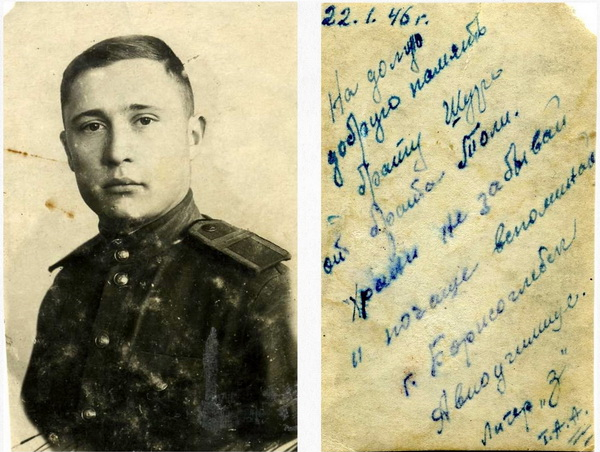 22.1.46 г.
На долгую
добрую память
брату Шуре
от брата Толи.
Храни не забывай
и почаще вспоминай
г. Борисоглебск
Авиаучилище.
Литер „З"
Т.А.А.